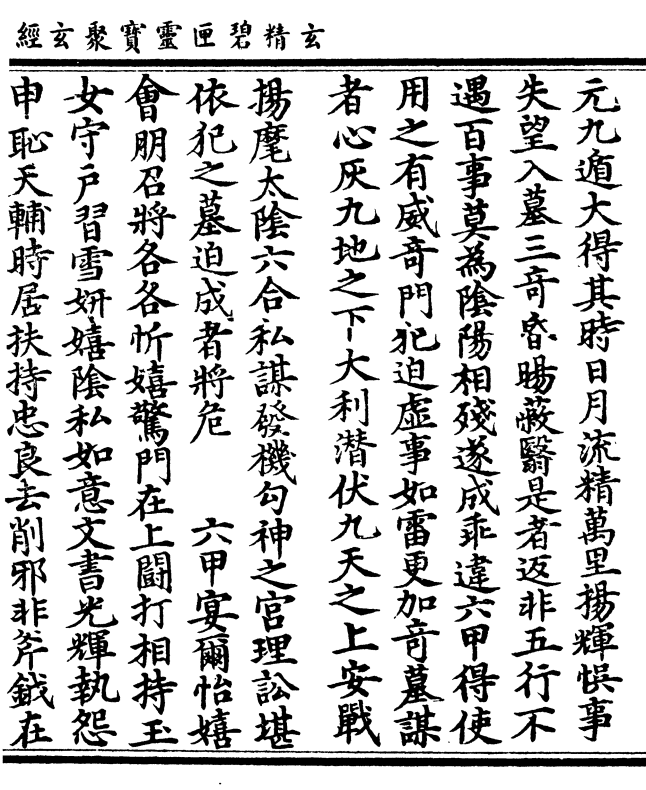 玄精碧匣靈寶聚玄經
元九遁大得其時日月流精萬里揚輝悞事
失望入墓三竒昏暘蔽翳是者返非五行不
遇百事莫為陰陽相殘遂成乖違六甲得使
用之有威竒門犯迫虛事如雷更加竒墓謀
者心灰九地之下大利潛伏九天之上安戰
揚麾太陰六合私謀發機勾神之宮理訟堪
依犯之墓迫成者將危　六甲宴爾怡嬉
會朋召將各各忻嬉驚門在上鬪打相持玉
女守戶習雪妍嬉陰私如意文書光輝執怨
申恥天輔時居扶持忠良去削邪非斧鉞在